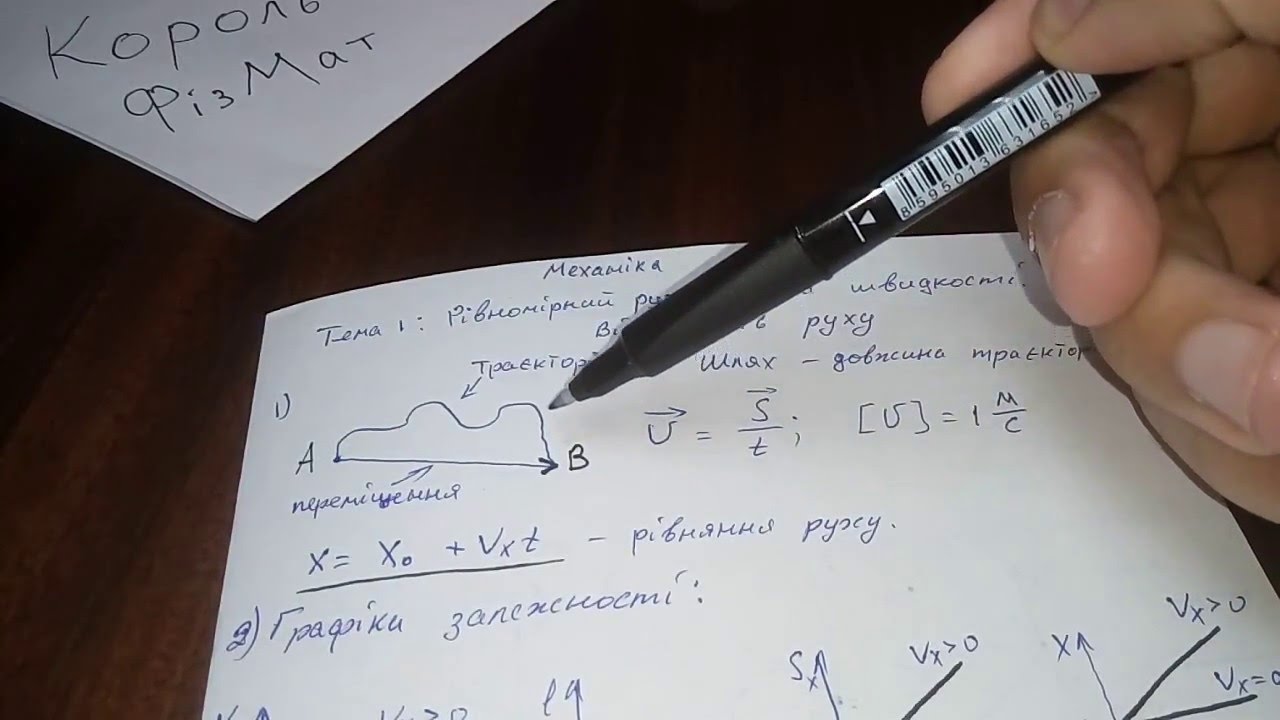 Король
ФізМат
8595013631652
Механіка
Тема 1: Рівномірний швидкості.
руху
траєкторі Шлях - довжина траєктор
1)
A B
переміщення
v⃗ = s⃗/t; [v] = 1 м/с
x = x₀ + vₓt - рівняння руху.
2) Графіки залежності:
Sₓ Vₓ>0 X Vₓ>0
Vₓ=0
Vₓ>0 lq